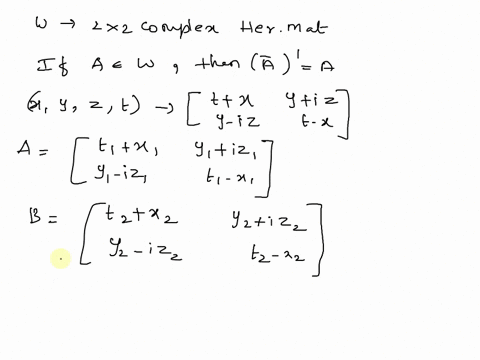 W → 2x2 complex Her. mat
If A ∈ W, then (Ā)' = A
(x, y, z, t) → [ t+x y+iz
y-iz t-x ]
A = [ t₁+x₁ y₁+iz₁
y₁-iz₁ t₁-x₁ ]
B = [ t₂+x₂ y₂+iz₂
y₂-iz₂ t₂-x₂ ]